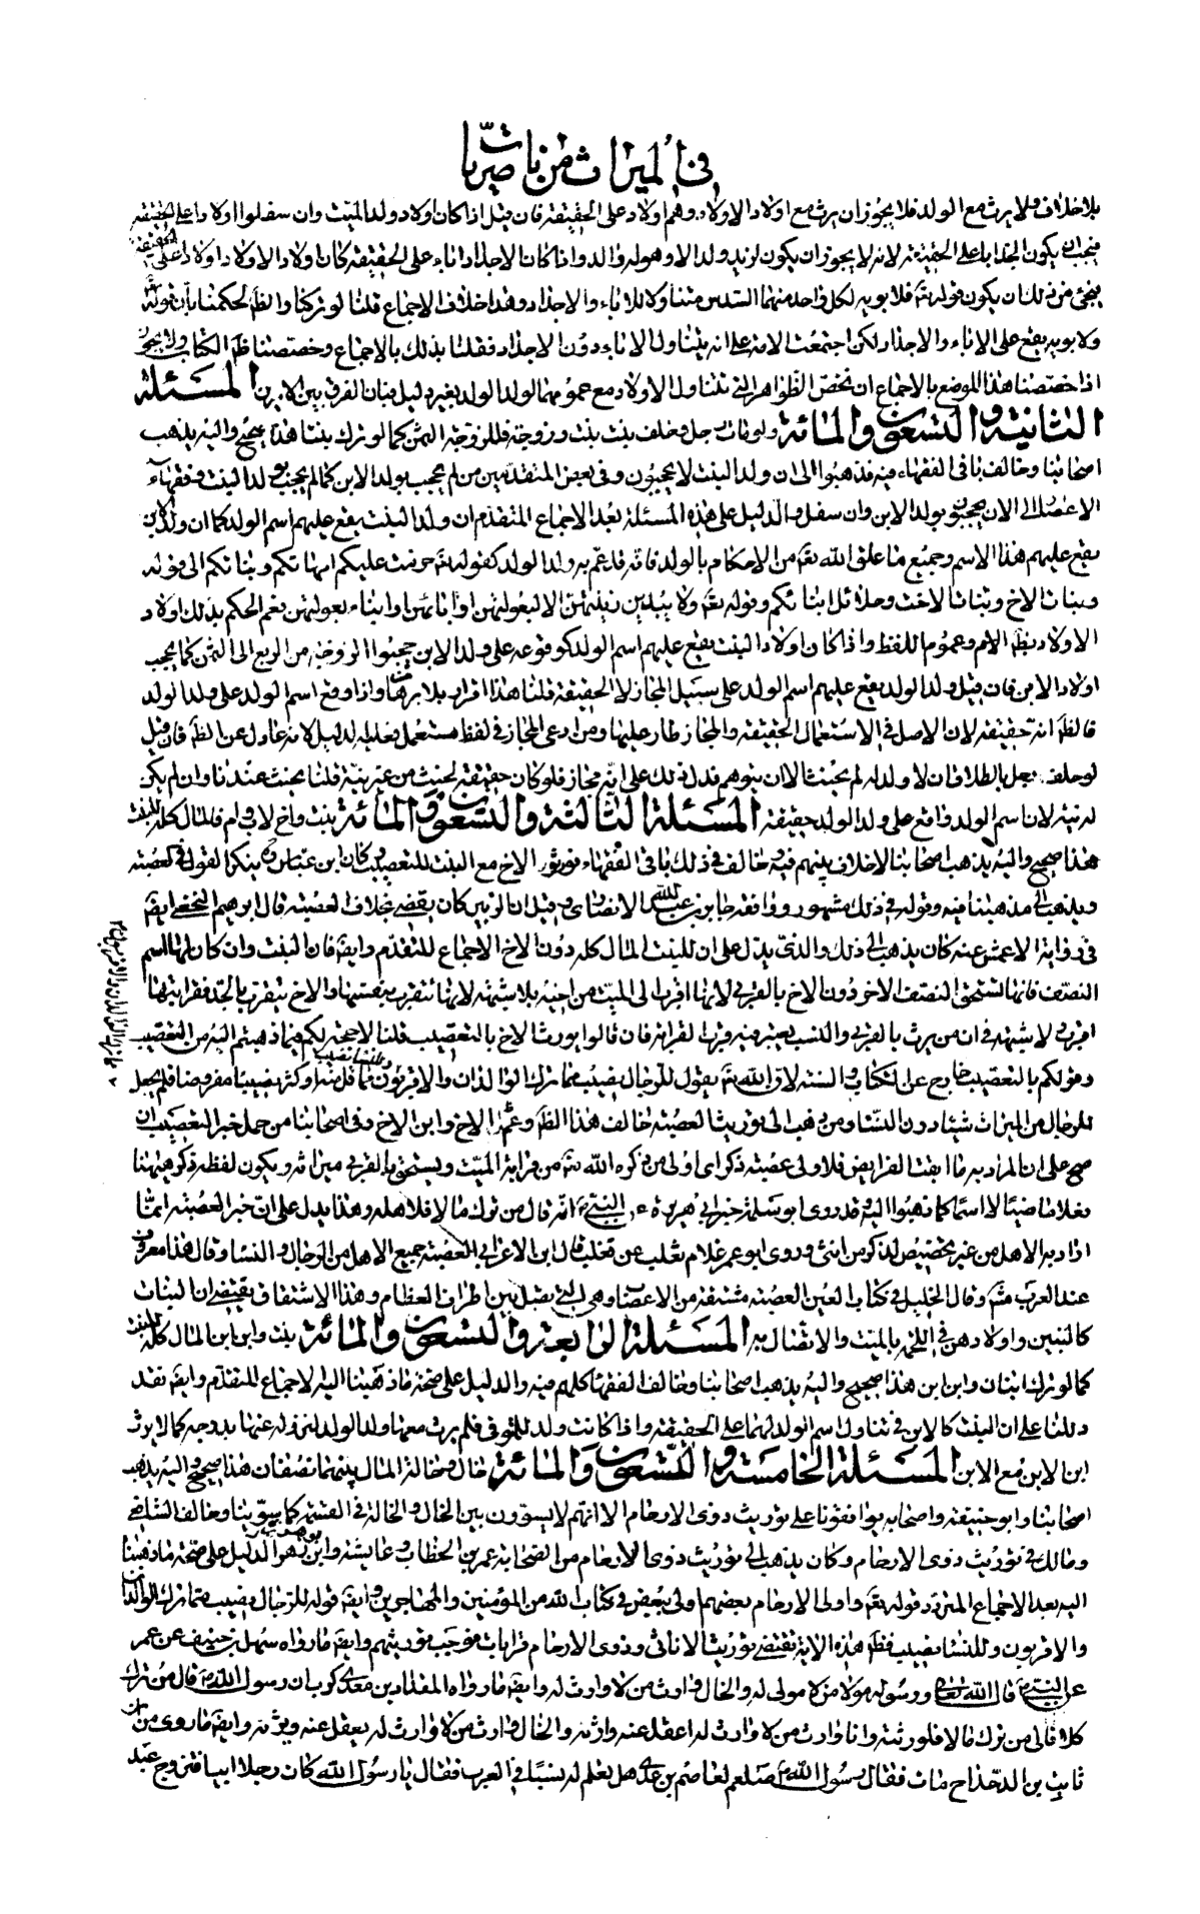 في الميراث من ناصريات
بلا خلاف ولا يرث مع الولد فلا يجوز ان يرث مع اولاد الاولاد وهم اولاد على الحقيقة فان قيل اذا كان اولاد ولد الميت وان سفلوا اولادا على الحقيقة
فيجب ان يكون الجد ابا على الحقيقة لانه لا يجوز ان يكون لزيد ولد الا وهو له والد واذا كان الاجداد اباء على الحقيقة كان اولاد الاولاد اولادا على الحقيقة
من ذلك ان يكون قوله تع فلابويه لكل واحد منهما السدس متناولا للاباء والاجداد وهذا خلاف الاجماع قلنا لو تركنا والظ لحكمنا بان قوله
ولابويه يقع على الاباء والاجداد لكن اجتمعت الامة على انه يتناول الاباء دون الاجداد فقلنا بذلك بالاجماع وخصصنا ظ الكتاب ولا يجوز
اذا خصصنا هذا الموضع بالاجماع ان نخص الظواهر التي تتناول الاولاد مع عمومها لولد الولد بغير دليل فبان الفرق بين الامرين المسئلة
الثانية والتسعون والمائة ولو مات رجل وخلف بنت بنت وزوجة فللزوجة الثمن كما لو ترك بنتا هذا صحيح واليه يذهب
اصحابنا وخالف باقي الفقهاء فيه فذهبوا الى ان ولد البنت لا يحجبون وفي بعض المتقدمين من لم يحجب بولد الابن كما لم يحجب بولد البنت وفقهاء
الاعصار الى الان يحجبون بولد الابن وان سفل والدليل على هذه المسئلة بعد الاجماع المتقدم ان ولد البنت يقع عليهم اسم الولد كما ان ولد الابن
يقع عليهم هذا الاسم وجميع ما علق الله تع من الاحكام بالولد فانه قد عم به ولد الولد كقوله تع حرمت عليكم امهاتكم وبناتكم الى قوله
وبنات الاخ وبنات الاخت وحلائل ابنائكم وقوله تع ولا يبدين زينتهن الا لبعولتهن او ابائهن او ابناء بعولتهن فعم الحكم بذلك اولاد
الاولاد بظ الام وعموم اللفظ واذا كان اولاد البنت يقع عليهم اسم الولد كوقوعه على ولد الابن حجبوا الزوجة من الربع الى الثمن كما يحجب
اولاد الابن فان قيل ولد الولد يقع عليهم اسم الولد على سبيل المجاز لا الحقيقة قلنا هذا اقرار بلا برهان واذا وقع اسم الولد على ولد الولد
فالظ انه حقيقة لان الاصل في الاستعمال الحقيقة والمجاز طار عليها ومن ادعى المجاز في لفظ مستعمل فعليه الدليل لانه عادل عن الظ فان قيل
لو حلف رجل بالطلاق ان لا ولد له لم يحنث الا ان ينويهم فدل ذلك على انه مجاز فلو كان حقيقة لحنث من غير نية قلنا يحنث عندنا وان لم يكن
له نية لان اسم الولد واقع على ولد الولد حقيقة المسئلة الثالثة والتسعون والمائة بنت واخ لاب وام فالمال كله للبنت
هذا صحيح واليه يذهب اصحابنا لا خلاف بينهم فيه وخالف في ذلك باقي الفقهاء فورثوا الاخ مع البنت للتعصيب وكان ابن عباس ره ينكر القول في العصبة
ويذهب الى مذهبنا فيه وقوله في ذلك مشهور ووافقه جابر بن عبد الله الانصاري وقيل ان الزبير كان يقضي بخلاف العصبة قال ابرهيم النخعي ايضا
في رواية الاعمش عنه كان يذهب الى ذلك والذي يدل على ان للبنت المال كله دون الاخ الاجماع المتقدم وايضا فان البنت وان كان لها اسم
النصف فانها تستحق النصف الاخر دون الاخ بالقربى لانها اقرب الى الميت من اخيه بلا شبهة لانها تتقرب بنفسها والاخ يتقرب بالجد فقرابتها
اقرب لا شبهة في ان من يرث بالقربى والنسب يعتبر فيه قرب القرابة فان قالوا يورث الاخ بالتعصيب قلنا لا حجة لكم فيما ذهبتم اليه من التعصيب
وقولكم بالتعصيب خارج عن الكتاب والسنة لان الله تع يقول للرجال نصيب مما ترك الوالدان والاقربون وللنساء نصيب مما قل منه او كثر نصيبا مفروضا فلم يجعل
للرجال من الميراث شيئا دون النساء ومن ذهب الى توريث العصبة خالف هذا الظ وعم الاخ وابن الاخ وفي اصحابنا من حمل خبر التعصيب ان
صح على ان المراد به ما ابقت الفرايض فلاولى عصبة ذكر اي اولى من ذكره الله تع من قرابة الميت ويستحق بالقربى ميراثه ويكون لفظه ذكر هيهنا
فعلا ماضيا لا اسما كما ذهبوا اليه وقد روى ابو سلمة عن ابي هريرة عن النبي ص انه قال من ترك مالا فلاهله وهذا يدل على ان خبر العصبة انما
اراد به الاهل من غير تخصيص لذكر من انثى وروى ابو عمر غلام ثعلب عن ثعلب قال ابن الاعرابي العصبة جميع الاهل من الرجال والنساء وقال هذا معروف
عند العرب مشه وقال الخليل في كتاب العين العصبة مشتقة من الاعصاب وهي التي تصل بين اطراف العظام وهذا الاشتقاق يقتضي ان البنات
كالبنين واولادهن في اللحمة بالميت والاتصال به المسئلة الرابعة والتسعون والمائة بنت وابن ابن المال كله للبنت
كما لو ترك ابنان وابن ابن هذا صحيح واليه يذهب اصحابنا وخالف الفقها كلهم فيه والدليل على صحة ما ذهبنا اليه الاجماع المتقدم وايضا فقد
دللنا على ان البنت كالابن في تناول اسم الولد لهما على الحقيقة واذا كانت ولد للمتوفى فلم يرث معها ولد الولد لنزوله عنها بدرجة كما لا يرث
ابن الابن مع الابن المسئلة الخامسة والتسعون والمائة خال وخالة المال بينهما نصفان هذا صحيح واليه يذهب
اصحابنا وابو حنيفة واصحابه يوافقونا على توريث ذوى الارحام الا انهم لا يسوون بين الخال والخالة في القسمة كما سوينا وخالف الشافعي
ومالك في توريث ذوى الارحام وكان يذهب الى توريث ذوى الارحام من الصحابة عمر بن الخطاب وعايشة والدليل على صحة ما ذهبنا
اليه بعد الاجماع المتردد قوله تع واولوا الارحام بعضهم اولى ببعض في كتاب الله من المؤمنين والمهاجرين وايضا قوله للرجال نصيب مما ترك الوالدان
والاقربون وللنساء نصيب فظ هذه الاية تقتضي توريث الاناثى وذوى الارحام قرابات فوجب توريثهم وايضا ما رواه سهل بن حنيف عن عمر
عن النبي ص قال الله تع ورسوله مولا من لا مولى له والخال وارث من لا وارث له وايضا ما رواه المقداد بن معدى كرب ان رسول الله ص قال من ترك
كلا فالي من ترك مالا فلورثته وانا وارث من لا وارث له اعقل عنه وارثه والخال وارث من لا وارث له يعقل عنه ويرثه وايضا ما روى من ان
ثابت بن الدحداح مات فقال رسول الله ص صلعم لعاصم بن عدى هل تعلم له نسبا في العرب فقال يا رسول الله كان رجلا اتيا فتزوج عبد